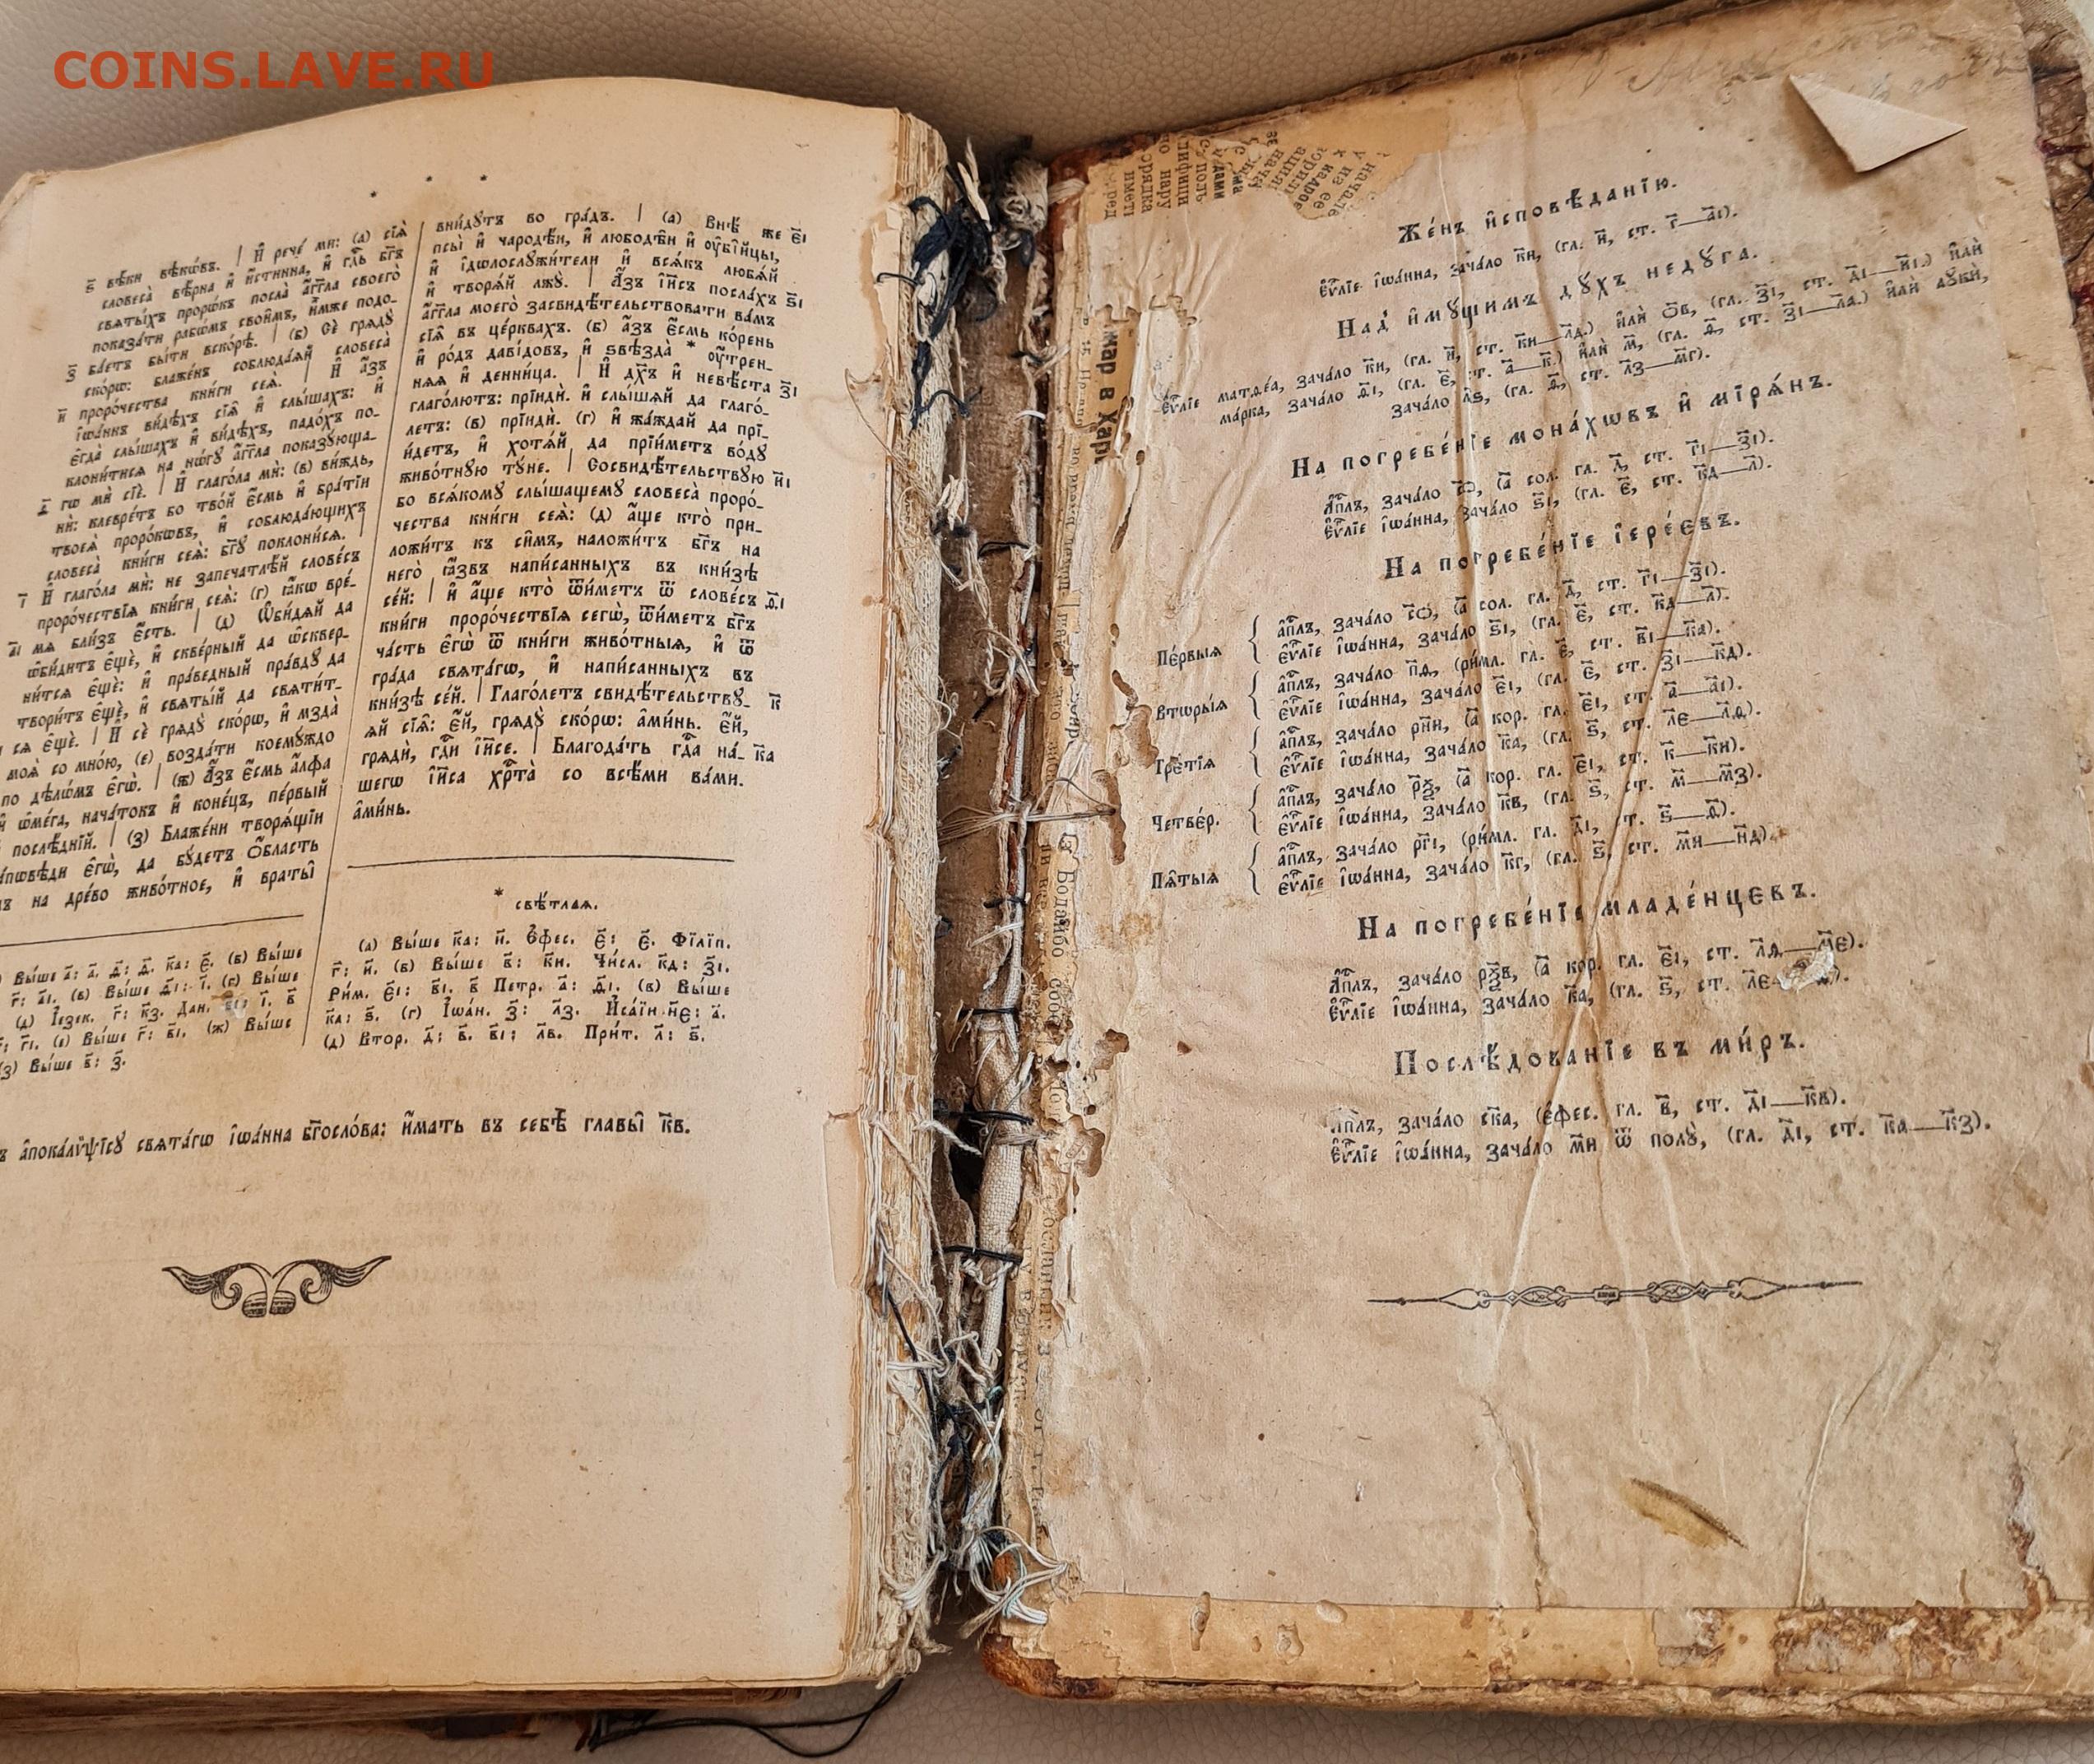 COINS.LAVE.RU
* * *
ѕ҃ вѣ́ки вѣкѡ́въ. | И҆ рече́ ми: (а) сїѧ̑
словеса̀ вѣ̑рна и҆ и҆́стинна, и҆ гдⷭ҇ь бг҃ъ
свѧты́хъ прⷪ҇рѡ́къ посла̀ а҆́гг҃ла своего̀
показа́ти рабѡ́мъ свои̑мъ, и҆̀мже подо-
з҃ ба́етъ бы́ти вско́рѣ. | (б) Сѐ грѧдꙋ̀
ско́рѡ: блаже́нъ соблюда́ѧй словеса̀
и҃ проро́чества кни́ги сеѧ̀. | И҆ а҆́зъ
і҆ѡа́ннъ ви́дѣхъ сїѧ̑ и҆ слы́шахъ: и҆
є҆гда̀ слы́шахъ и҆ ви́дѣхъ, падо́хъ по-
клони́тисѧ на нѡ́гꙋ а҆́гг҃ла показꙋ́юща-
гѡ мѝ сїѐ. | И҆ глаго́ла мѝ: (в) ви́ждь,
нѝ: клевре́тъ бо тво́й є҆́смь и҆ бра́тїи
твоеѧ̀ проро́кѡвъ, и҆ соблюда́ющихъ
словеса̀ кни́ги сеѧ̀: бг҃ꙋ поклони́сѧ. |
і҃ И҆ глаго́ла мѝ: не запечатлѣ́й слове́съ
проро́чествїѧ кни́ги сеѧ̀: (г) ꙗ҆́кѡ вре́-
а҃і мѧ бли́зъ є҆́сть. | (д) Ѡ҆би́дѧй да
ѡ҆би́дитъ є҆щѐ, и҆ скве́рный да ѡ҆скве́р-
ни́тсѧ є҆щѐ: и҆ пра́ведный пра́вдꙋ да
твори́тъ є҆щѐ, и҆ свѧты́й да свѧти́т-
сѧ є҆щѐ. | И҆ сѐ грѧдꙋ̀ ско́рѡ, и҆ мзда̀
моѧ̀ со мно́ю, (е) возда́ти коемꙋ́ждо
по дѣлѡ́мъ є҆гѡ̀. | (ж) А҆́зъ є҆́смь а҆́лфа
и҆ ѡ҆ме́га, нача́токъ и҆ коне́цъ, пе́рвый
послѣ́днїй. | (з) Блаже́ни творѧ́щїи
за́пѡвѣди є҆гѡ̀, да бꙋ́детъ ѻ҆́бласть
на дре́во живо́тное, и҆ враты̑
вни́дꙋтъ во гра́дъ. | (а) Внѣ̀ же є҃і
псы̀ и҆ чародѣ́и, и҆ любодѣ́и и҆ ᲂу҆бі̑йцы,
и҆ і҆дѡлослꙋжи́тели и҆ всѧ́къ любѧ́й
и҆ творѧ́й лжꙋ̀. | А҆́зъ і҆и҃съ посла́хъ ѕ҃і
а҆́гг҃ла моего̀ засвидѣ́тельствовати ва́мъ
сїѧ̑ въ це́рквахъ. (б) а҆́зъ є҆́смь ко́рень
и҆ ро́дъ даві́довъ, и҆ ѕвѣзда̀ * ᲂу҆́трен-
нѧѧ и҆ денни́ца. | И҆ дх҃ъ и҆ невѣ́ста з҃і
глаго́лютъ: прїидѝ. и҆ слы́шай да глаго́-
летъ: (в) прїидѝ. (г) и҆ жа́ждай да прї-
и́детъ, и҆ хотѧ́й да прїи́метъ во́дꙋ
живо́тнꙋю тꙋ́не. | Сосвидѣ́тельствꙋю и҃і
бо всѧ́комꙋ слы́шащемꙋ словеса̀ проро́-
чества кни́ги сеѧ̀: (д) а҆́ще кто̀ при-
ложи́тъ къ си̑мъ, наложи́тъ бг҃ъ на
него̀ ꙗ҆́звъ напи́санныхъ въ кни́зѣ
се́й: | и҆ а҆́ще кто̀ ѿи́метъ ѿ слове́съ ѳ҃і
кни́ги проро́чествїѧ сегѡ̀, ѿи́метъ бг҃ъ
ча́сть є҆гѡ̀ ѿ кни́ги живо́тныѧ, и҆ ѿ
гра́да свѧта́гѡ, и҆ напи́санныхъ въ
кни́зѣ се́й. | Глаго́летъ свидѣ́тельствꙋ- к҃
ѧй сїѧ̑: є҆́й, грѧдꙋ̀ ско́рѡ: а҆ми́нь. є҆́й,
грѧдѝ, гдⷭ҇и і҆и҃се. | Благода́ть гдⷭ҇а на́- к҃а
шегѡ і҆и҃са хрⷭ҇та̀ со всѣ́ми ва́ми.
а҆ми́нь.
* свѣ́тлаѧ.
Вы́ше а҃: а҃, д҃: ѳ҃. к҃а: є҃. (б) Вы́ше
г҃: а҃і. (в) Вы́ше ѳ҃і: і҃. (г) Вы́ше
(д) І҆езек. г҃: к҃з. Дан.
г҃і. (е) Вы́ше г҃: в҃і. (ж) Вы́ше
(з) Вы́ше в҃: з҃.
(а) Вы́ше к҃а: и҃. Є҆фес. є҃: є҃. Фїлїп.
г҃: и҃. (б) Вы́ше в҃: к҃и. Чи́сл. к҃д: з҃і.
Ри́м. є҃і: в҃і. в҃ Петр. а҃: ѳ҃і. (в) Вы́ше
к҃а: ѕ҃. (г) І҆ѡа́н. з҃: л҃з. И҆са́їи н҃е: а҃.
(д) Втор. д҃: в҃. в҃і: л҃в. При́т. л҃: ѕ҃.
а҆пока́лѷѱїсꙋ свѧта́гѡ і҆ѡа́нна бг҃осло́ва: и҆́мать въ себѣ̀ главы̑ к҃в.
Же́нъ и҆сповѣ́данїю.
є҆ѵⷢ҇лїе і҆ѡа́нна, зача́ло к҃и, (гл. и҃, ст. г҃—а҃і).
Над̾ и҆мꙋ́щимъ дꙋ́хъ недꙋ́га.
є҆ѵⷢ҇лїе матѳе́а, зача́ло к҃и, (гл. и҃, ст. к҃и—л҃д.) и҆лѝ ѻ҃в, (гл. з҃і, ст. д҃і—и҃і.) и҆лѝ
ма́рка, зача́ло ѳ҃і, (гл. є҃, ст. а҃—к҃.) и҆лѝ м҃, (гл. ѳ҃, ст. з҃і—л҃а.) и҆лѝ лꙋкѝ,
зача́ло л҃ѕ, (гл. ѳ҃, ст. л҃з—м҃г).
На погребе́нїе мона́хѡвъ и҆ мїрѧ́нъ.
А҆пⷭ҇лъ, зача́ло с҃ѻ, (а҃ сол. гл. д҃, ст. г҃і—з҃і).
є҆ѵⷢ҇лїе і҆ѡа́нна, зача́ло ѕ҃і, (гл. є҃, ст. к҃д—л҃).
На погребе́нїе і҆ере́євъ.
Пе́рвыѧ
а҆пⷭ҇лъ, зача́ло с҃ѻ, (а҃ сол. гл. д҃, ст. г҃і—з҃і).
є҆ѵⷢ҇лїе і҆ѡа́нна, зача́ло ѕ҃і, (гл. є҃, ст. к҃д—л҃).
Вторы́ѧ
а҆пⷭ҇лъ, зача́ло п҃ѳ, (ри́мл. гл. є҃, ст. в҃і—к҃а).
є҆ѵⷢ҇лїе і҆ѡа́нна, зача́ло є҃і, (гл. є҃, ст. з҃і—к҃д).
Тре́тїѧ
а҆пⷭ҇лъ, зача́ло рн҃и, (а҃ кор. гл. є҃і, ст. а҃—а҃і).
є҆ѵⷢ҇лїе і҆ѡа́нна, зача́ло к҃а, (гл. ѕ҃, ст. л҃є—л҃ѳ).
Четве́р.
а҆пⷭ҇лъ, зача́ло р҃ѯ, (а҃ кор. гл. є҃і, ст. к҃—к҃и).
є҆ѵⷢ҇лїе і҆ѡа́нна, зача́ло к҃в, (гл. ѕ҃, ст. м҃—м҃з).
Пѧ̑тыѧ
а҆пⷭ҇лъ, зача́ло рг҃і, (ри́мл. гл. д҃і, ст. ѕ҃—ѳ҃).
є҆ѵⷢ҇лїе і҆ѡа́нна, зача́ло к҃г, (гл. ѕ҃, ст. м҃и—н҃д).
На погребе́нїе младе́нцєвъ.
А҆пⷭ҇лъ, зача́ло рѯ҃в, (а҃ кор. гл. є҃і, ст. л҃ѳ—м҃є).
Є҆ѵⷢ҇лїе і҆ѡа́нна, зача́ло к҃а, (гл. ѕ҃, ст. л҃є—
Послѣ́дованїе въ ми́ръ.
А҆пⷭ҇лъ, зача́ло ск҃а, (є҆фес. гл. в҃, ст. д҃і—к҃в).
Є҆ѵⷢ҇лїе і҆ѡа́нна, зача́ло м҃и ѿ полꙋ̀, (гл. д҃і, ст. к҃а—к҃з).